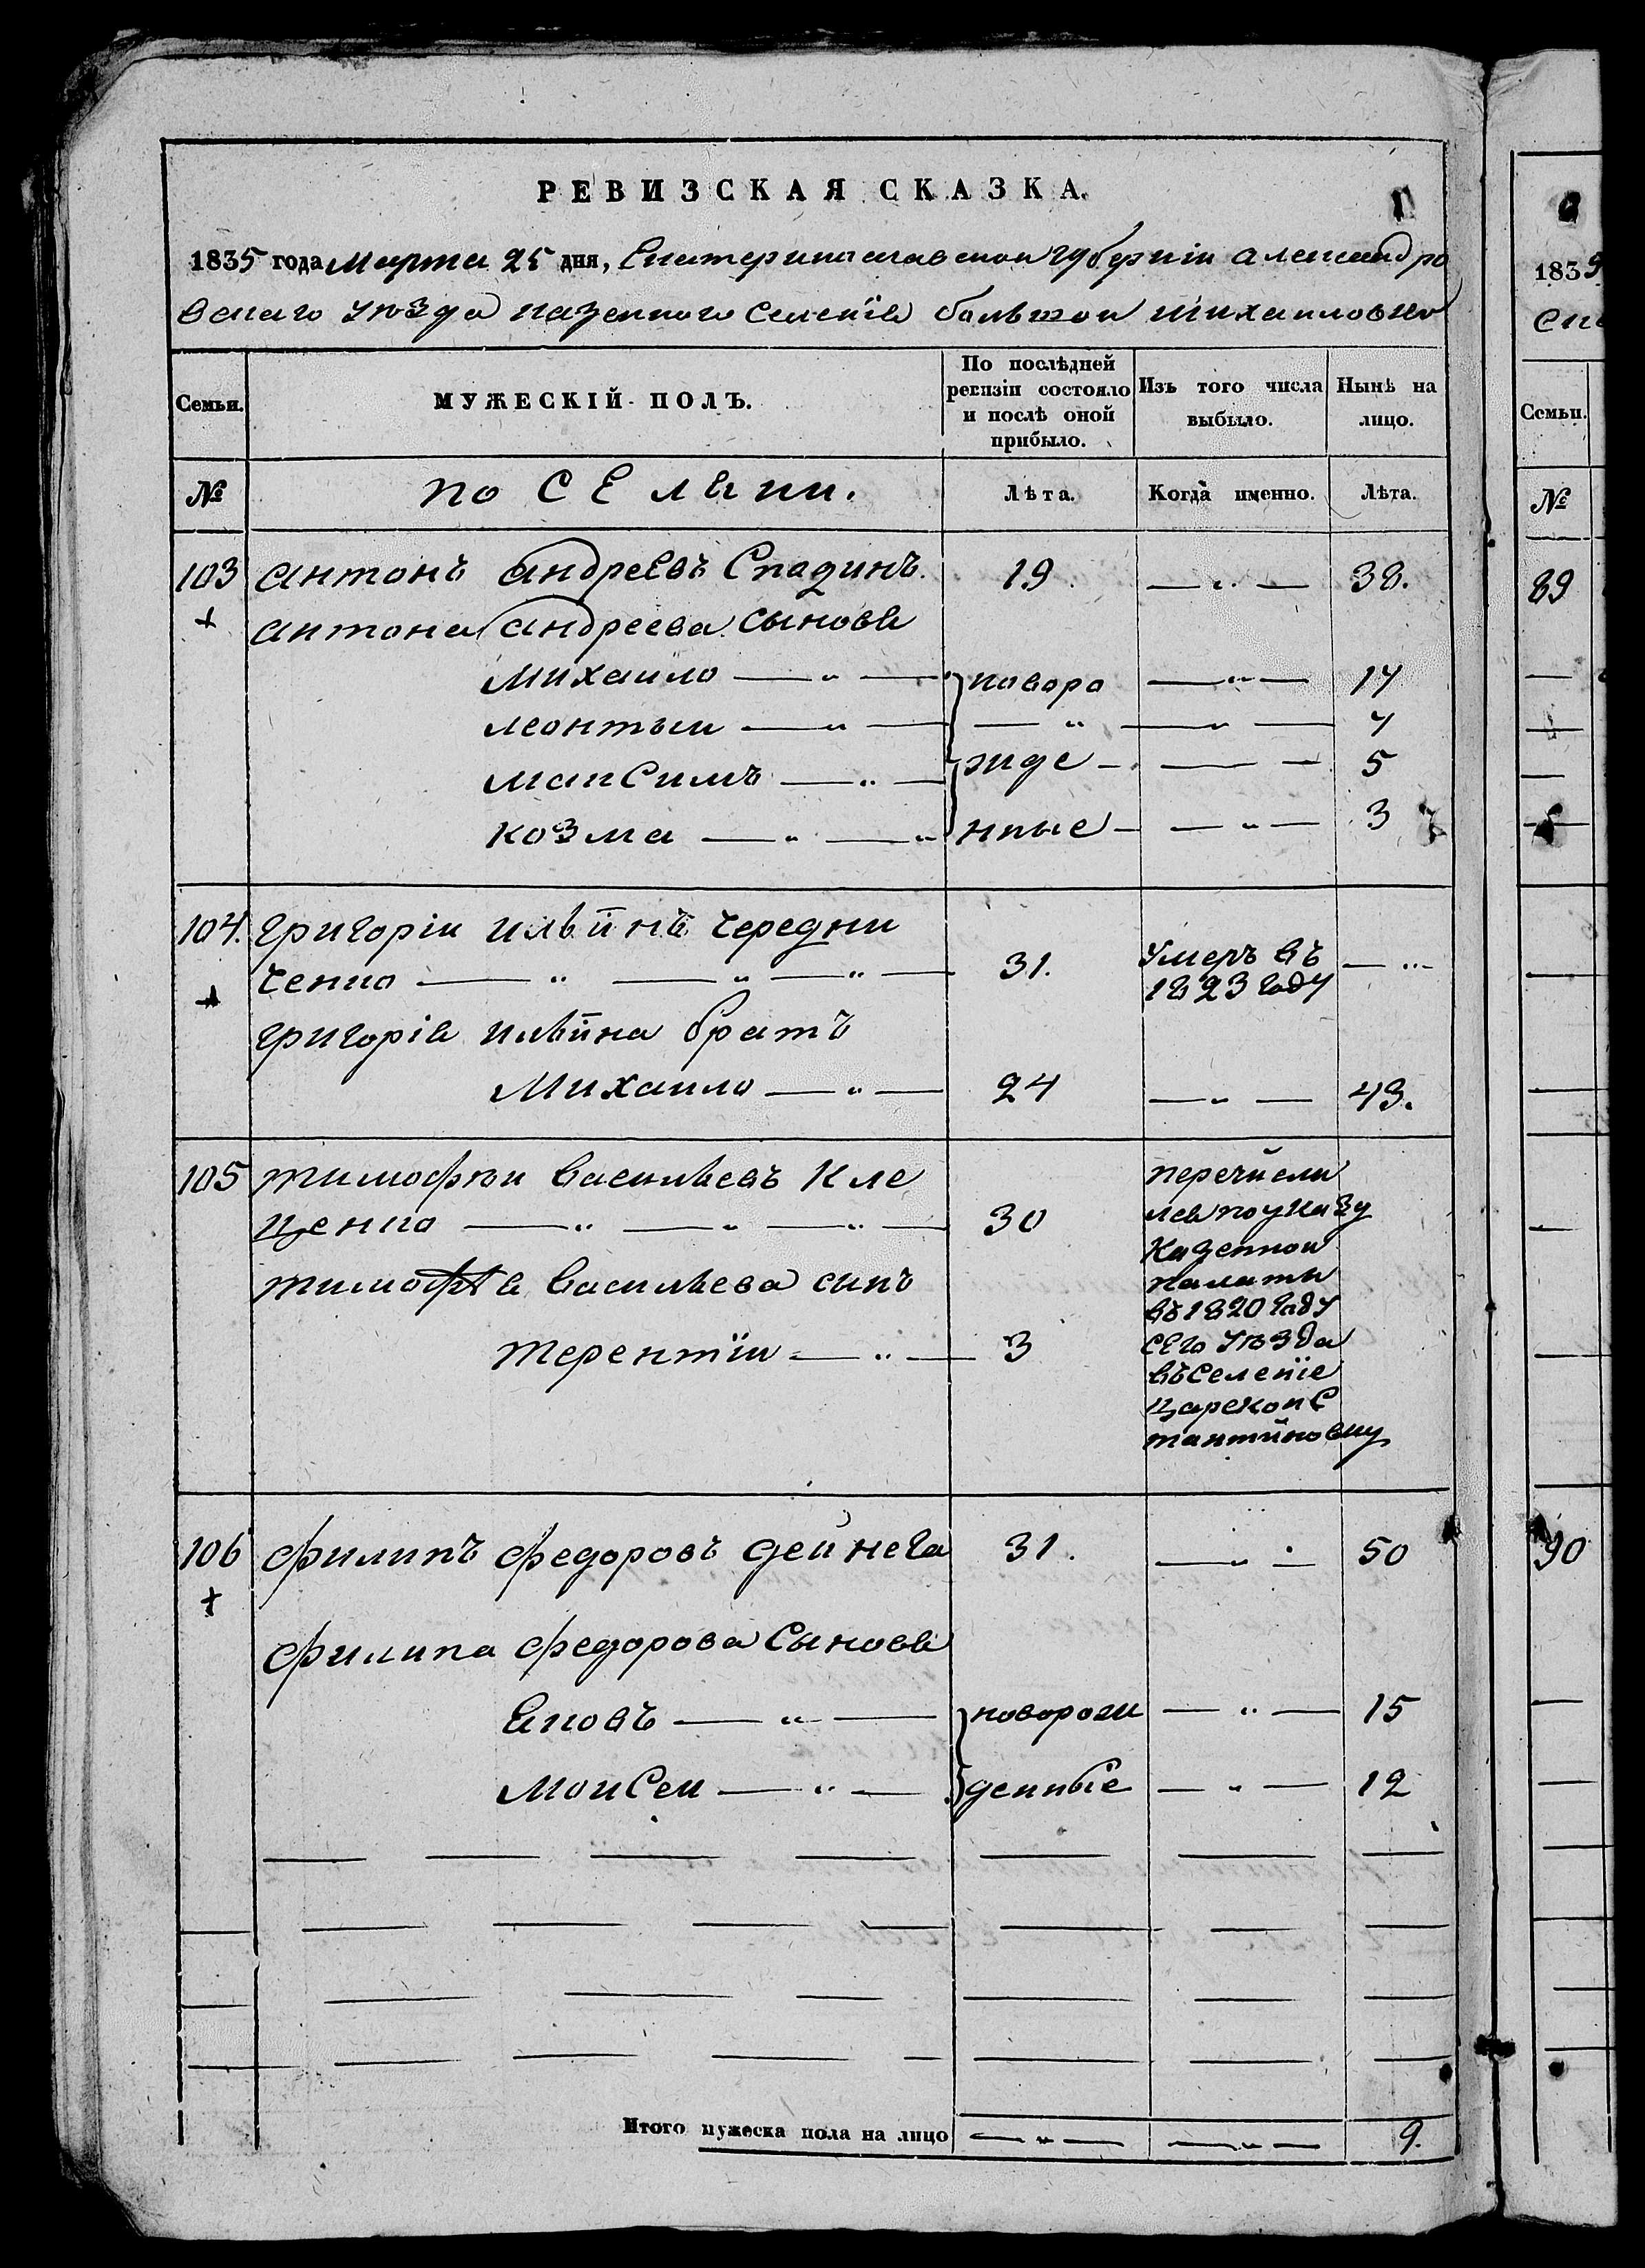 РЕВИЗСКАЯ СКАЗКА.
1835 года Марта 25 дня, Екатеринославской губерніи Александро
вскаго уѣзда казенного Селенія большой Михайловки
Семьи.
МУЖЕСКІЙ ПОЛЪ.
По послѣдней ревизіи состояло и послѣ оной прибыло.
Изъ того числа выбыло.
Нынѣ на лицо.
№
Лѣта.
Когда именно.
Лѣта.
103 Антонъ Андреевъ Сладинъ. 19. — „ — 38.
Антона Андреева Сынове
Михайло — „ — новоро — „ — 14
Леонтьи — „ — — „ — „ — 7
Максимъ — „ — жде — — — 5
Козма — „ — „ нные — — „ — 3
104. Григоріи Ильинъ Чередни
ченко — „ — „ — „ — 31. Умеръ въ 1823 году — „
Григорія Ильина братъ
Михаило — „ — 24 — „ — 43.
105 Тимофѣи Васильевъ Кле
ценко — „ — „ — „ — 30
Тимофѣя Васильева сынъ
Терентіи — „ — 3
перечисли
лся по указу
Казенной
палаты
въ 1820 году
сего уѣзда
въ Селеніе
Царекон С
тантиновку
106 Филипъ Федоровъ Дейнега 31. — „ — 50
Филипа Федорова Сынове
Яковъ — „ — новорож — „ — 15
Моисеи — „ — денные — „ — 12
Итого мужеска пола на лицо — „ — — „ — 9.
1835
Семьи.
№
89
90